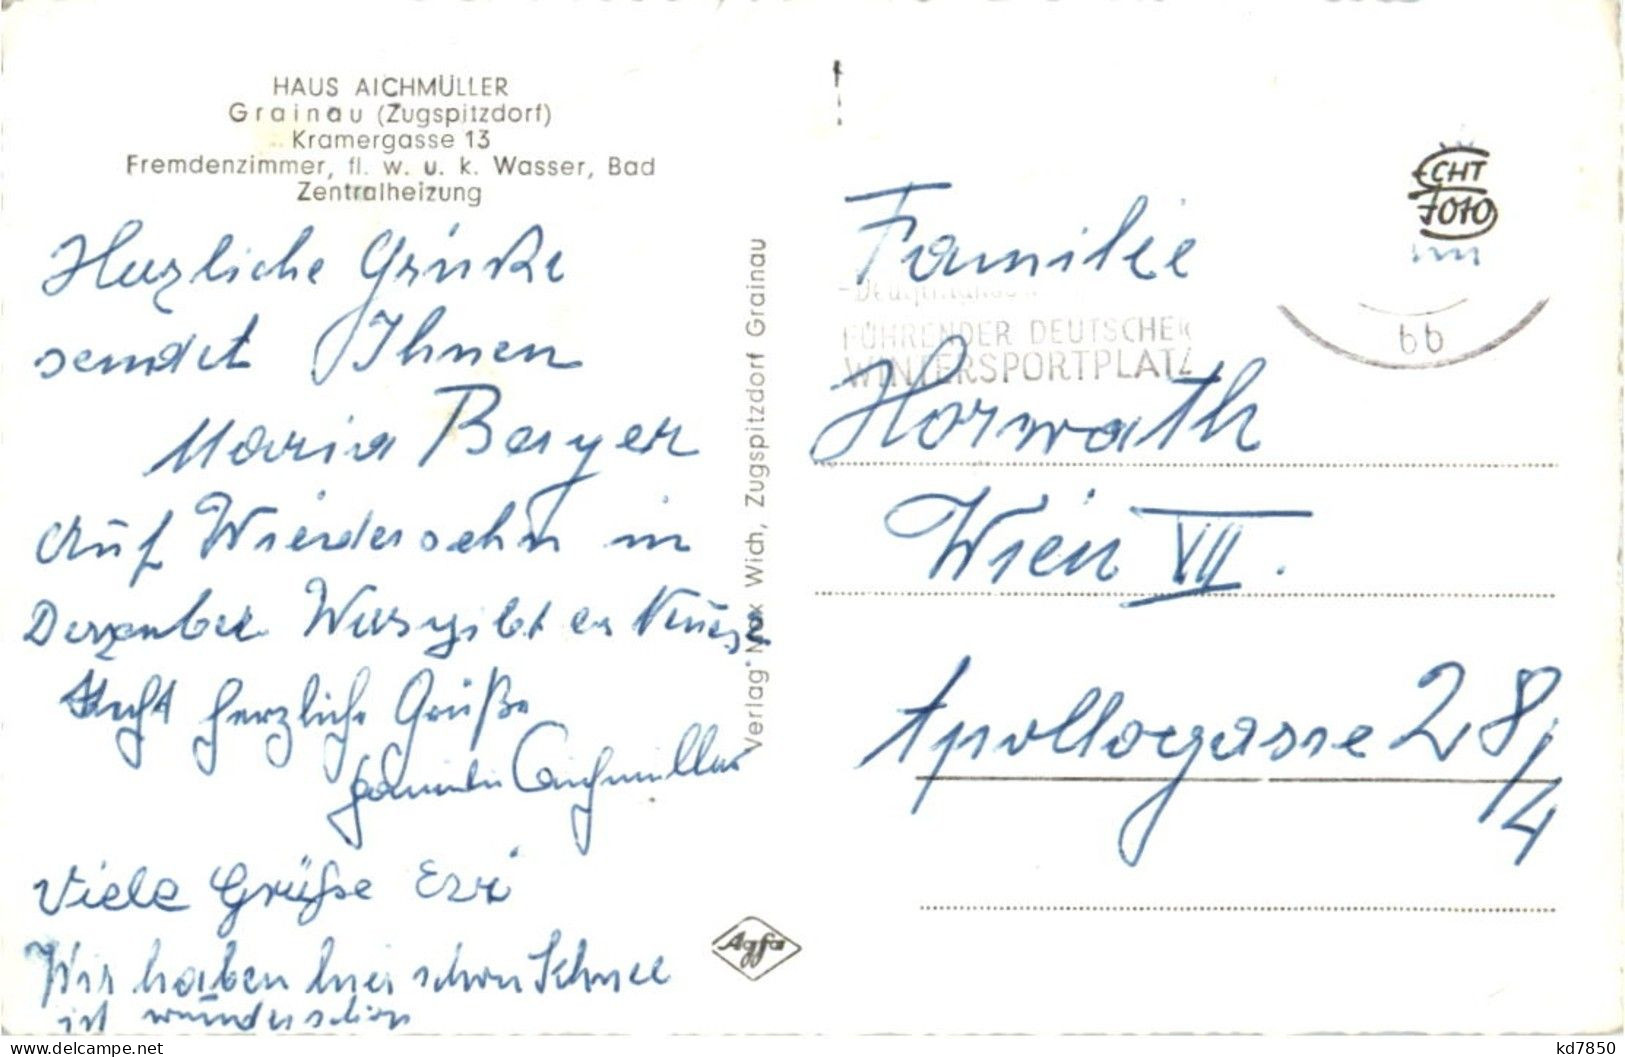 HAUS AICHMÜLLER
Grainau (Zugspitzdorf)
Kramergasse 13
Fremdenzimmer, fl. w. u. k. Wasser, Bad
Zentralheizung
Herzliche Grüße
sendet Ihnen
Maria Bayer
Auf Wiedersehn in
Dezember Was gibt es Neues
Recht herzliche Grüße
Familie Aichmüller
Viele Grüße Evi
Wir haben hier schon Schnee
ist wunderschön
Verlag Max Wich, Zugspitzdorf Grainau
Agfa
ECHT
FOTO
FÜHRENDER DEUTSCHER
WINTERSPORTPLATZ
bb
Familie
Horwath
Wien VII.
Apollogasse 28/4
delcampe.net
kd7850